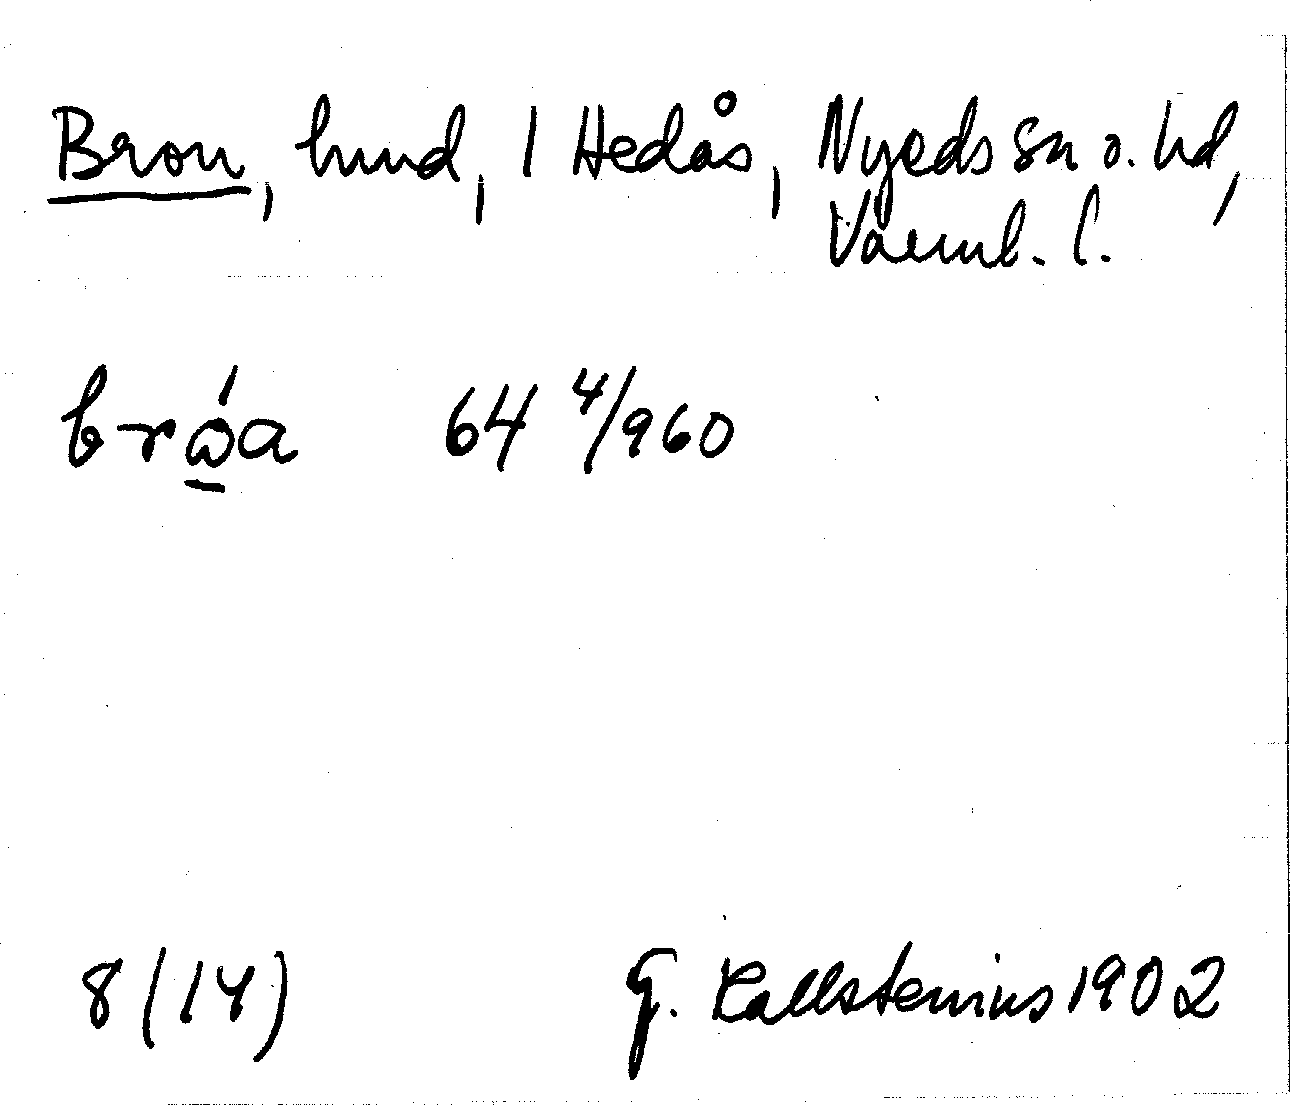 Bron, hund, 1 Hedås, Nyeds sn o. hd,
Värml. l.
brώ̲a 64 4/960
8 (14) G. Kallstenius 1902